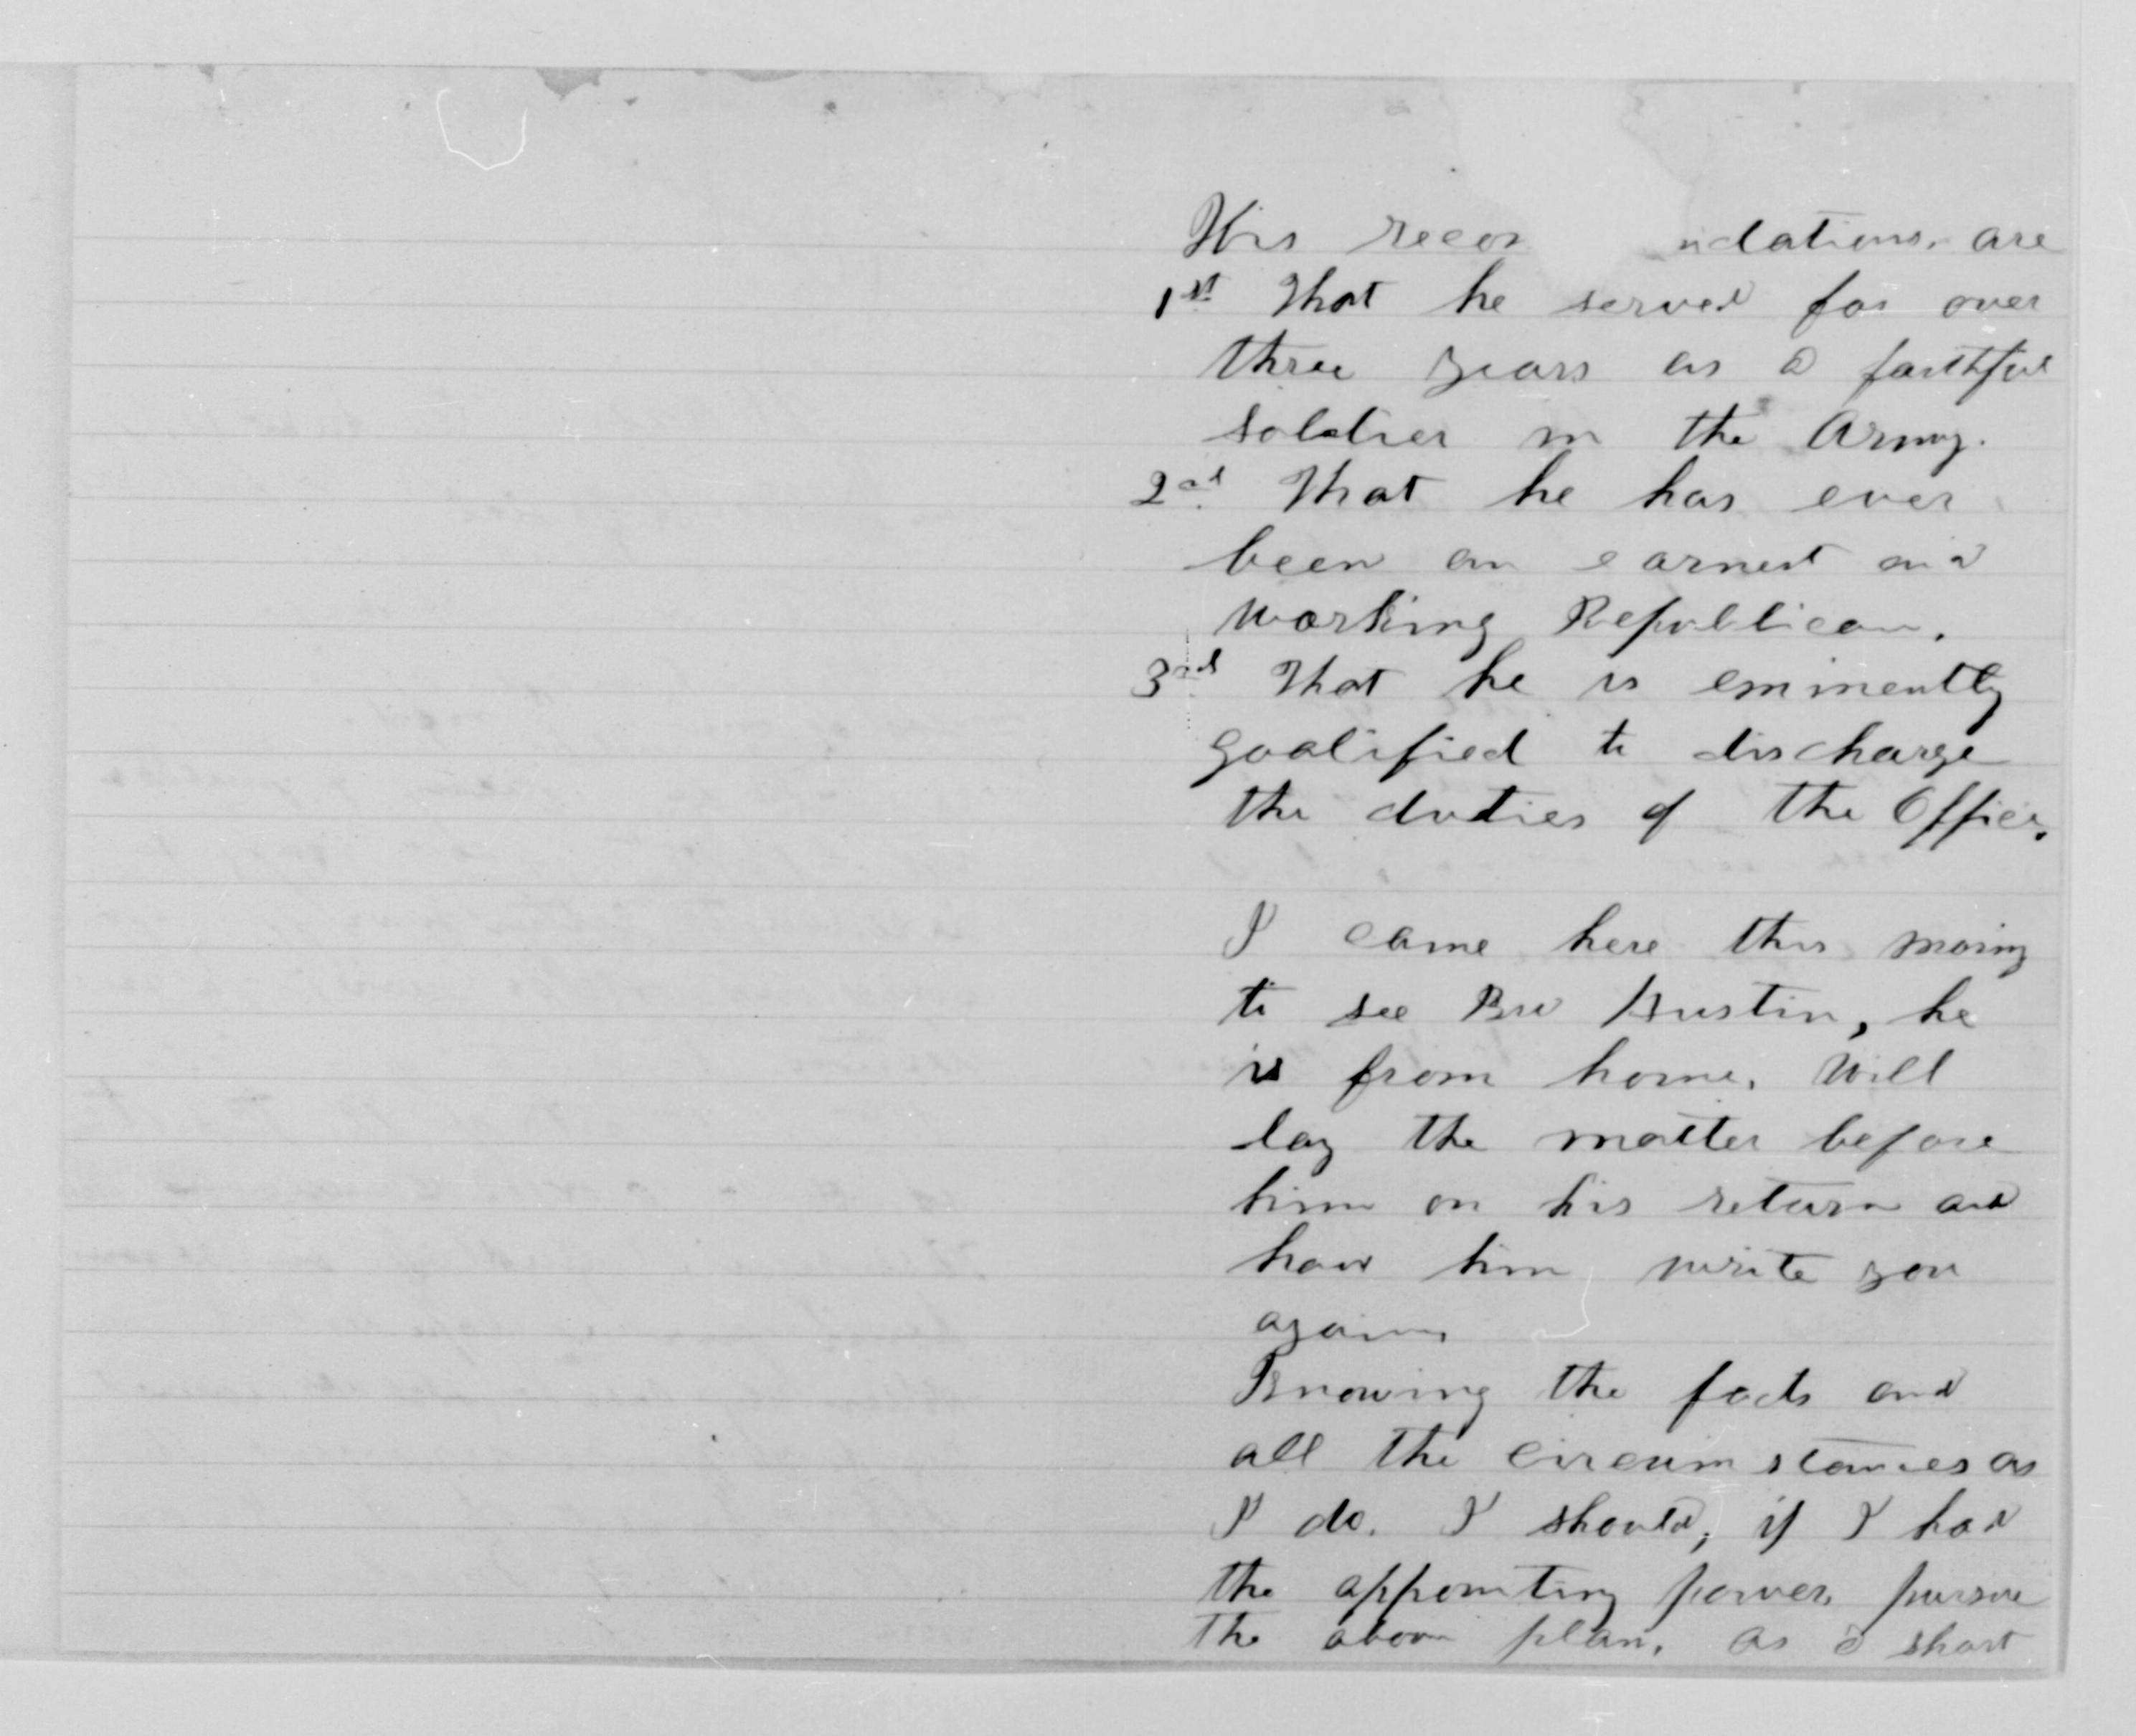 His recom ndations are
1st That he served for over
three years as a faithful
soldier in the Army.
2nd That he has ever
been an earnest and
working Republican.
3rd That he is eminently
qualified to discharge
the duties of the Office.
I came here this morning
to see Bro Austin, he
is from home. Will
lay the matter before
him on his return and
have him write you
again
Knowing the facts and
all the circumstances as
I do. I should, if I had
the appointing power, pursue
the above plan. As a short